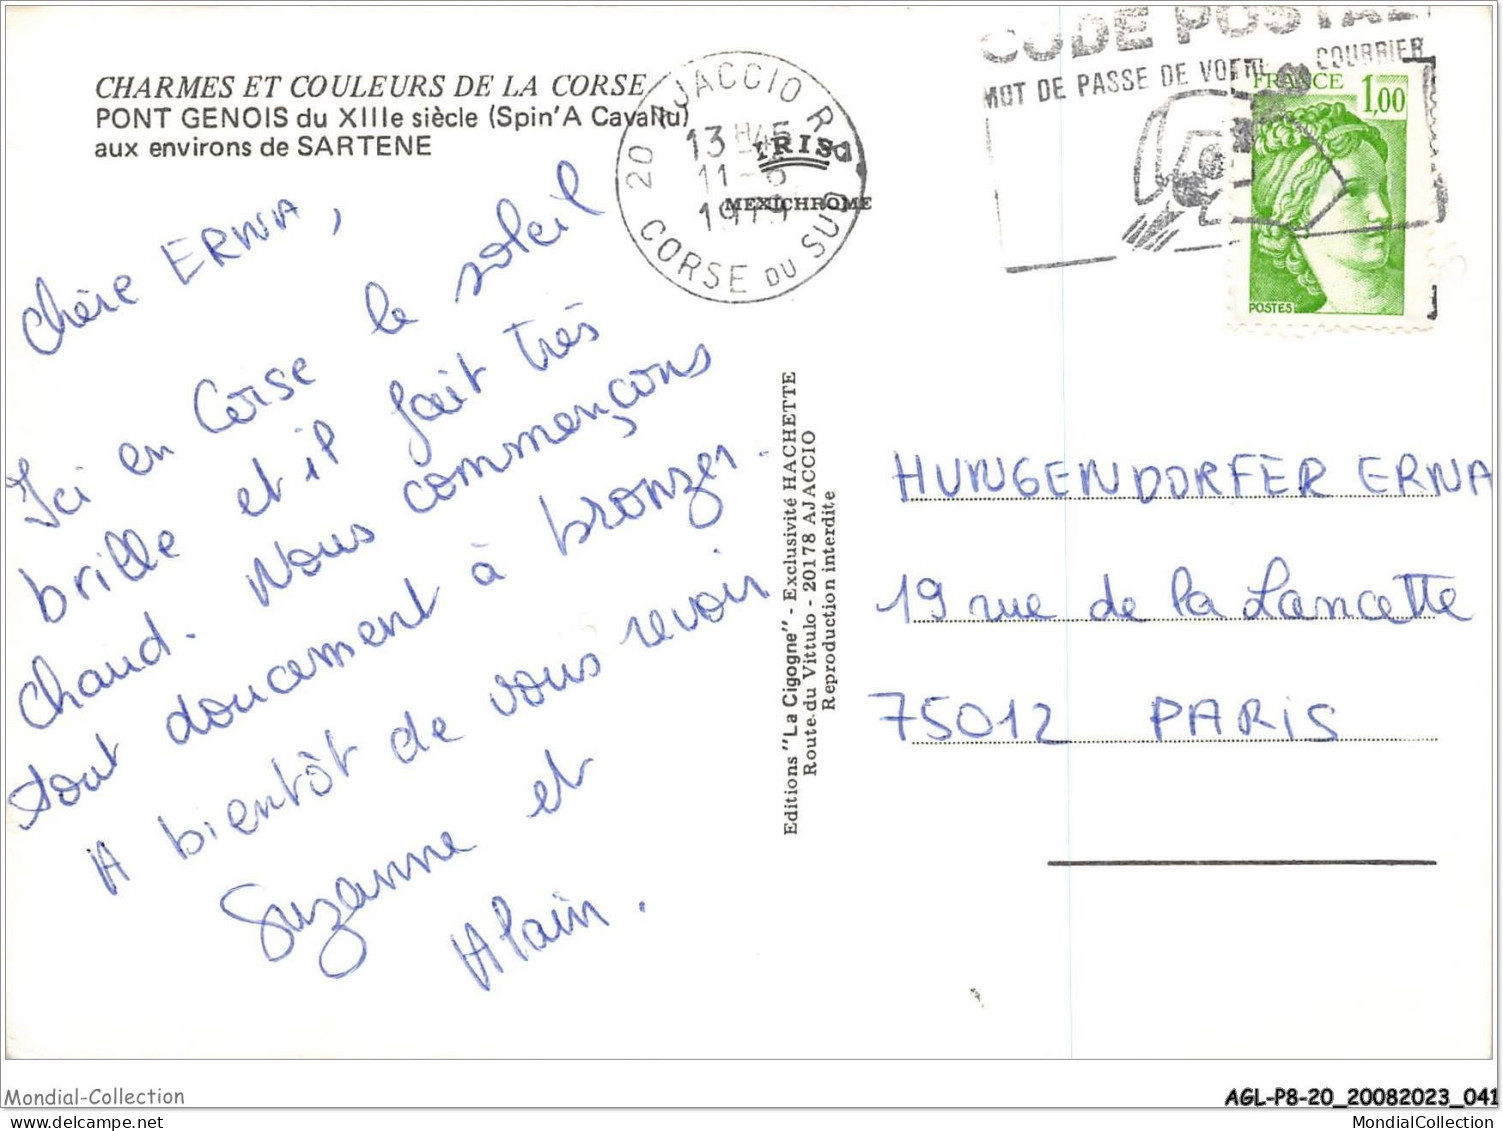 CHARMES ET COULEURS DE LA CORSE
PONT GENOIS du XIIIe siècle (Spin'A Cavallu)
aux environs de SARTENE
20 AJACCIO R.P.
13 H45
11-6
1979
CORSE DU SUD
IRIS
MEXICHROME
CODE POSTAL
MOT DE PASSE DE VOTRE COURRIER
FRANCE 1,00
POSTES
Chère ERNA,
Ici en Corse le soleil
brille et il fait très
chaud. Nous commençons
tout doucement à bronzer.
A bientôt de vous revoir
Suzanne et
Alain.
Editions "La Cigogne" - Exclusivité HACHETTE
Route du Vittulo - 20178 AJACCIO
Reproduction interdite
HUNGENDORFER ERNA
19 rue de la Lancette
75012 PARIS
Mondial-Collection
AGL-P8-20_20082023_041
www.mondialcollection.net
MondialCollection